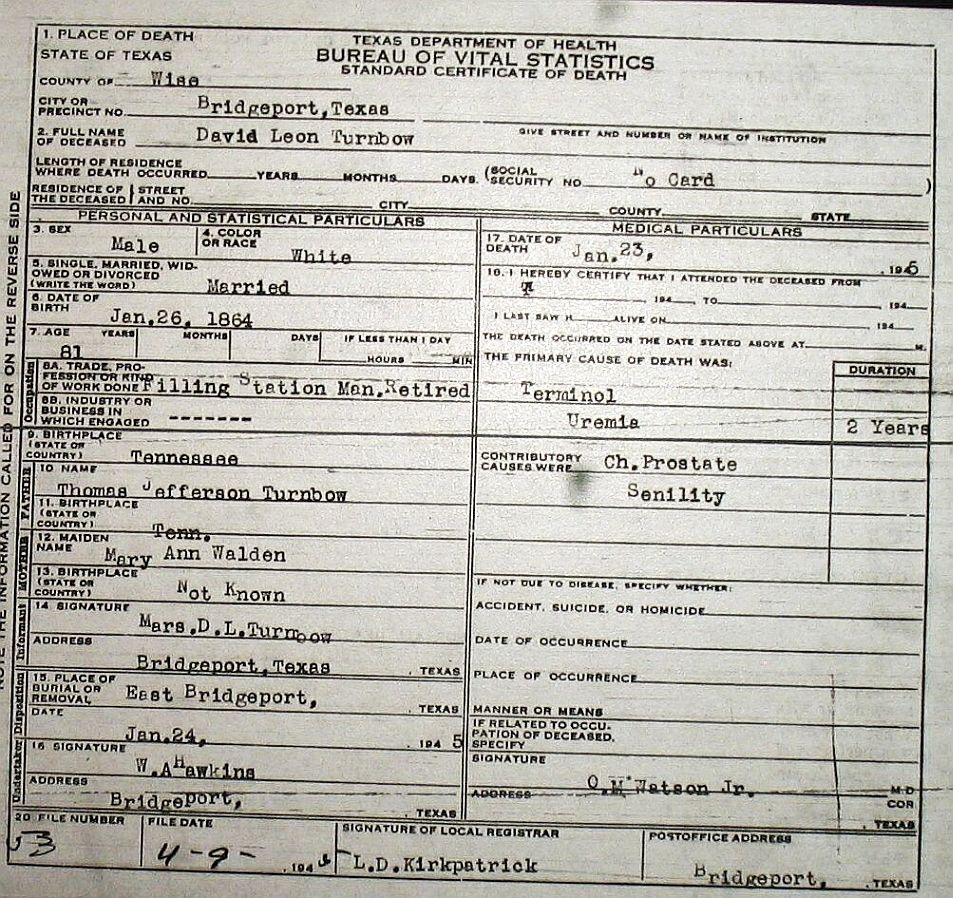 TEXAS DEPARTMENT OF HEALTH
BUREAU OF VITAL STATISTICS
STANDARD CERTIFICATE OF DEATH
1. PLACE OF DEATH
STATE OF TEXAS
COUNTY OF Wise
CITY OR PRECINCT NO. Bridgeport,Texas
GIVE STREET AND NUMBER OR NAME OF INSTITUTION
2. FULL NAME OF DECEASED David Leon Turnbow
LENGTH OF RESIDENCE WHERE DEATH OCCURRED YEARS MONTHS DAYS. (SOCIAL SECURITY NO. No Card )
RESIDENCE OF THE DECEASED STREET AND NO. CITY COUNTY STATE
PERSONAL AND STATISTICAL PARTICULARS
3. SEX Male
4. COLOR OR RACE White
5. SINGLE, MARRIED, WIDOWED OR DIVORCED (WRITE THE WORD) Married
6. DATE OF BIRTH Jan.26, 1864
7. AGE YEARS MONTHS DAYS IF LESS THAN 1 DAY
81 HOURS MIN
Occupation
8A. TRADE, PROFESSION OR KIND OF WORK DONE Filling Station Man.Retired
8B. INDUSTRY OR BUSINESS IN WHICH ENGAGED -------
9. BIRTHPLACE (STATE OR COUNTRY) Tennessee
FATHER
10 NAME Thomas Jefferson Turnbow
11. BIRTHPLACE (STATE OR COUNTRY) Tenn.
MOTHER
12. MAIDEN NAME Mary Ann Walden
13. BIRTHPLACE (STATE OR COUNTRY) Not Known
Informant
14. SIGNATURE Mars.D.L.Turnbow
ADDRESS Bridgeport,Texas , TEXAS
Disposition
15. PLACE OF BURIAL OR REMOVAL East Bridgeport, , TEXAS
DATE Jan.24, , 1945
Undertaker
16 SIGNATURE W.AHawkins
ADDRESS Bridgeport, , TEXAS
MEDICAL PARTICULARS
17. DATE OF DEATH Jan.23, , 1945
18. I HEREBY CERTIFY THAT I ATTENDED THE DECEASED FROM
, 194 TO , 194
I LAST SAW H ALIVE ON , 194
THE DEATH OCCURRED ON THE DATE STATED ABOVE AT M.
THE PRIMARY CAUSE OF DEATH WAS: DURATION
Terminol
Uremia 2 Years
CONTRIBUTORY CAUSES WERE Ch.Prostate
Senility
IF NOT DUE TO DISEASE, SPECIFY WHETHER:
ACCIDENT, SUICIDE, OR HOMICIDE
DATE OF OCCURRENCE
PLACE OF OCCURRENCE
MANNER OR MEANS
IF RELATED TO OCCUPATION OF DECEASED, SPECIFY
SIGNATURE O.M Watson Jr. M D
ADDRESS COR
, TEXAS
20 FILE NUMBER 53
FILE DATE 4-9- , 194
SIGNATURE OF LOCAL REGISTRAR L.D.Kirkpatrick
POSTOFFICE ADDRESS Bridgeport, , TEXAS
THE INFORMATION CALLED FOR ON THE REVERSE SIDE